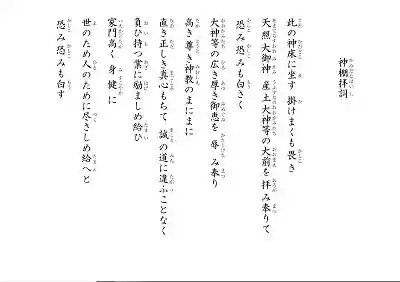 神棚拝詞
此の神床に坐す 掛けまくも畏き
天照大御神 産土大神等の大前を拝み奉りて
恐み恐みも白さく
大神等の広き厚き御恵を 辱み奉り
高き尊き神教のまにまに
直き正しき真心もちて 誠の道に違ふことなく
負ひ持つ業に励ましめ給ひ
家門高く 身健に
世のため人のために尽さしめ給へと
恐み恐みも白す